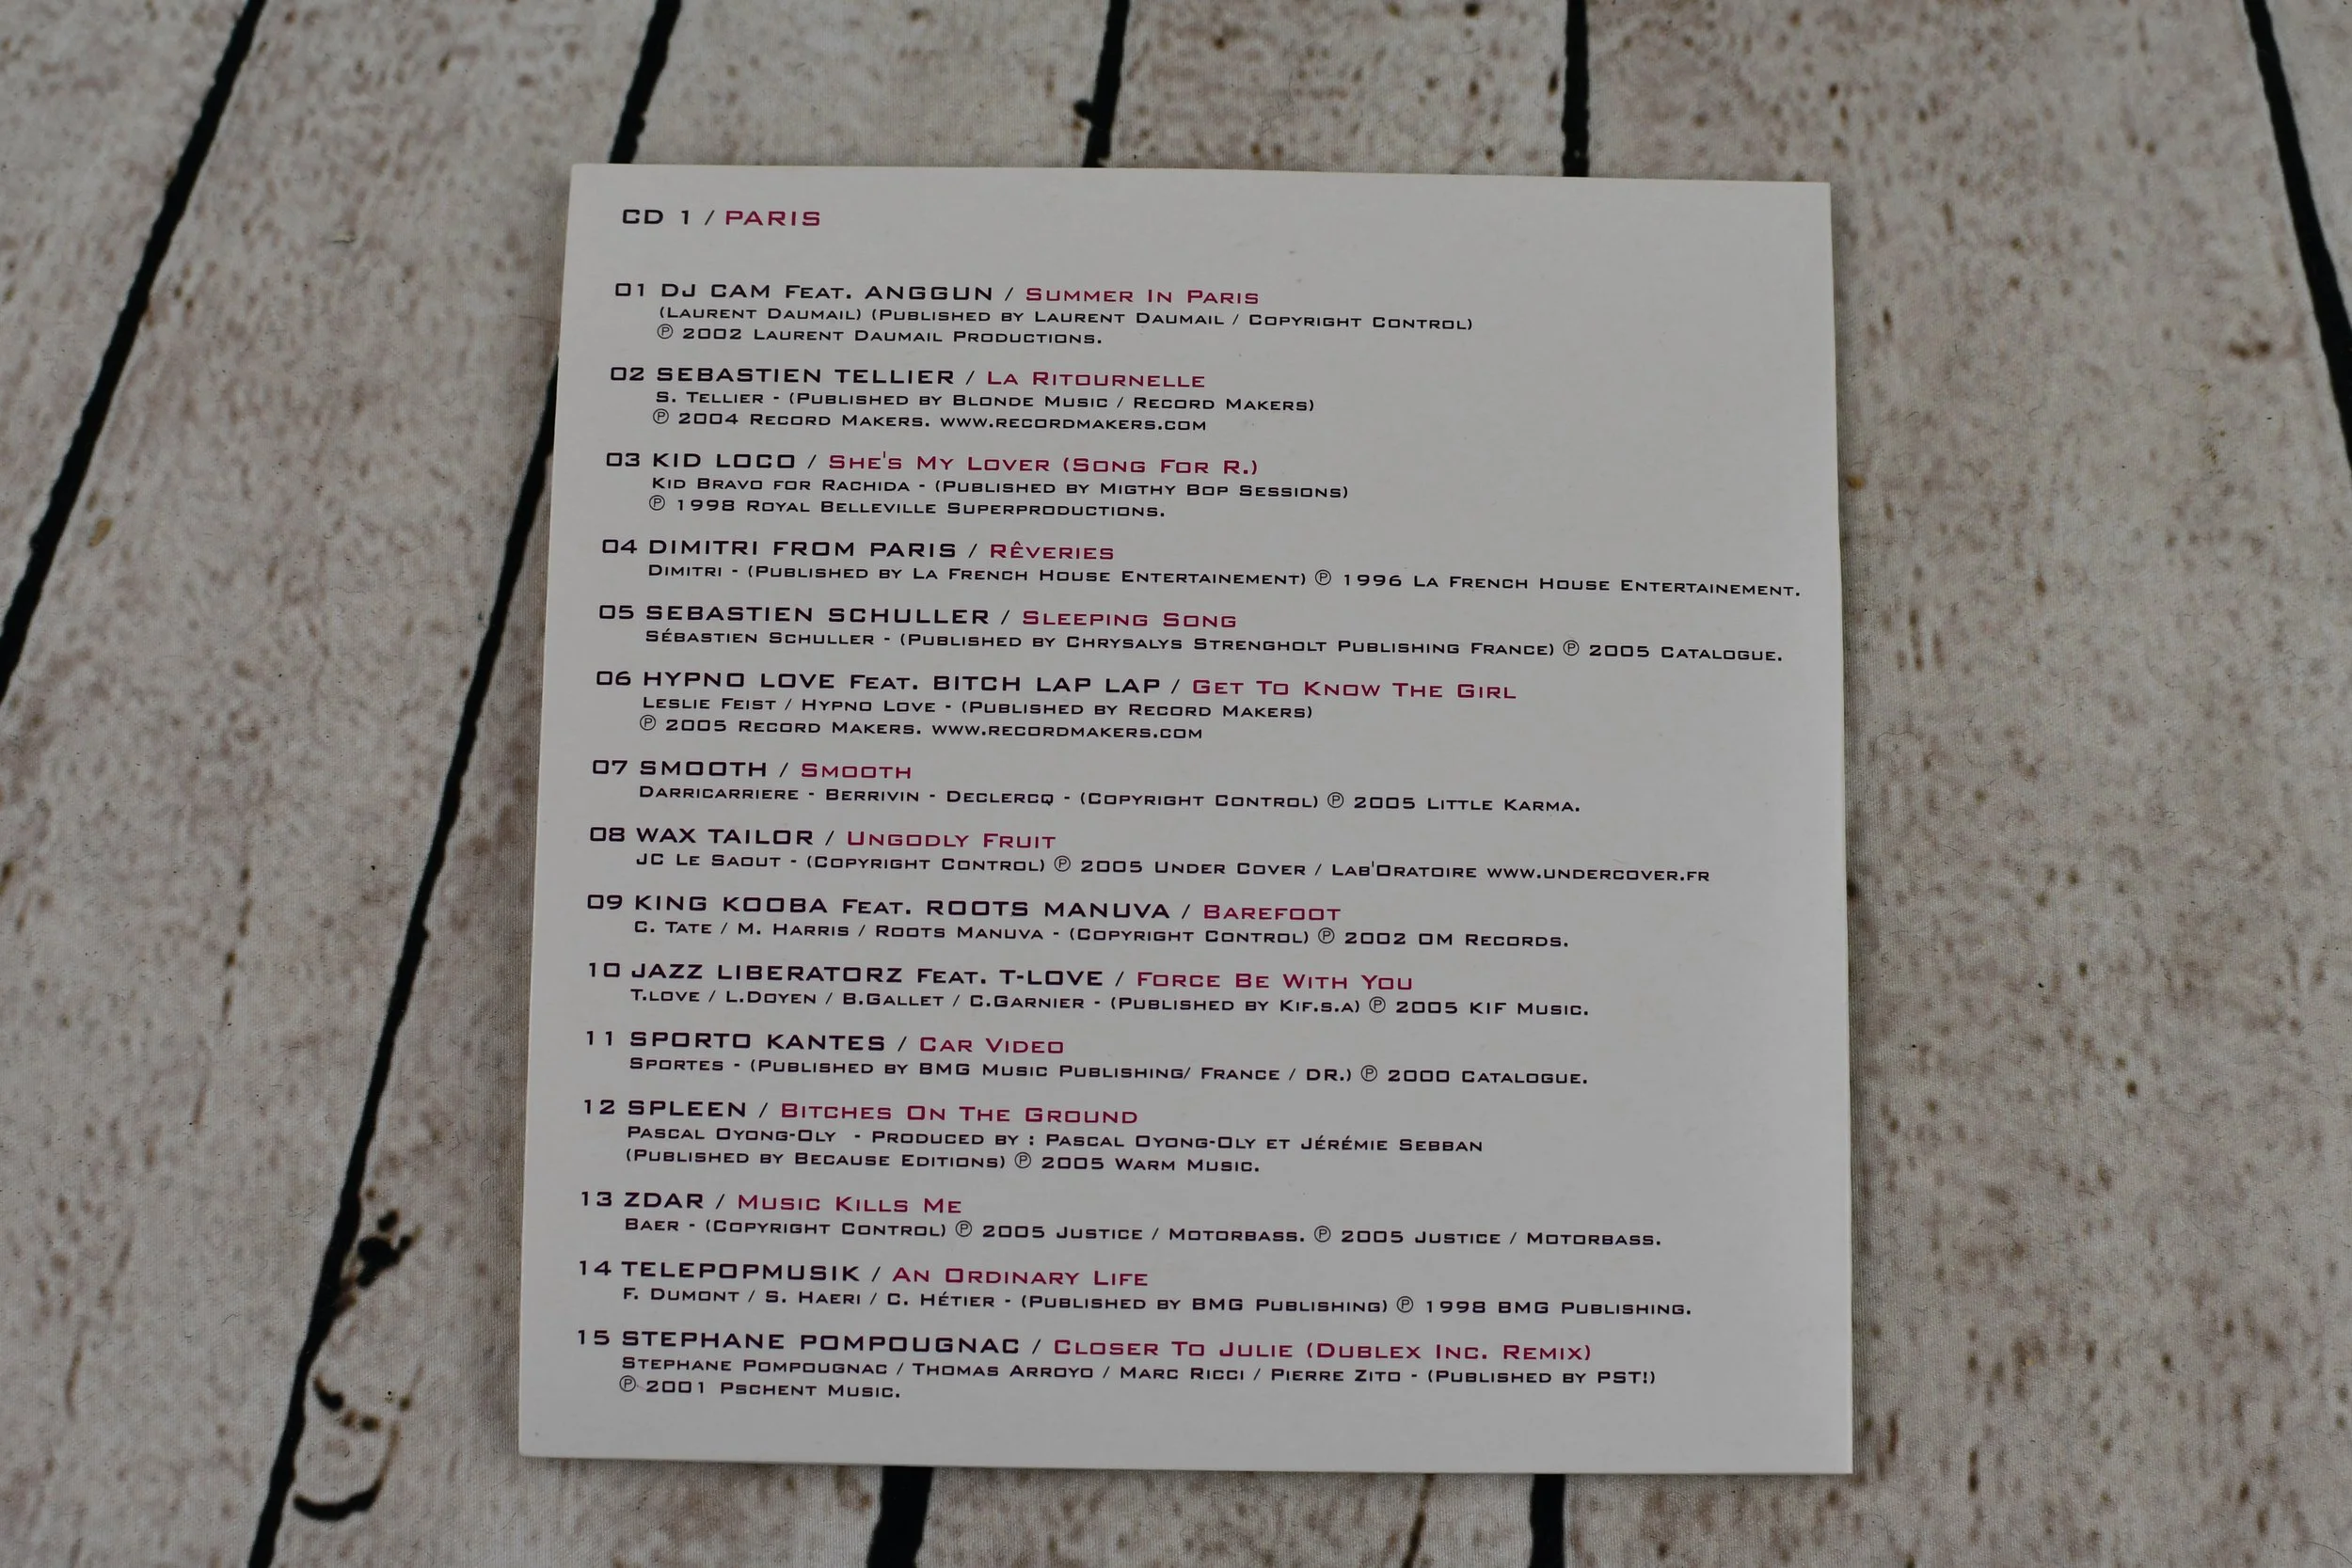 CD 1 / PARIS
01 DJ CAM FEAT. ANGGUN / SUMMER IN PARIS
(LAURENT DAUMAIL) (PUBLISHED BY LAURENT DAUMAIL / COPYRIGHT CONTROL)
℗ 2002 LAURENT DAUMAIL PRODUCTIONS.
02 SEBASTIEN TELLIER / LA RITOURNELLE
S. TELLIER - (PUBLISHED BY BLONDE MUSIC / RECORD MAKERS)
℗ 2004 RECORD MAKERS. WWW.RECORDMAKERS.COM
03 KID LOCO / SHE'S MY LOVER (SONG FOR R.)
KID BRAVO FOR RACHIDA - (PUBLISHED BY MIGTHY BOP SESSIONS)
℗ 1998 ROYAL BELLEVILLE SUPERPRODUCTIONS.
04 DIMITRI FROM PARIS / RÊVERIES
DIMITRI - (PUBLISHED BY LA FRENCH HOUSE ENTERTAINEMENT) ℗ 1996 LA FRENCH HOUSE ENTERTAINEMENT.
05 SEBASTIEN SCHULLER / SLEEPING SONG
SÉBASTIEN SCHULLER - (PUBLISHED BY CHRYSALYS STRENGHOLT PUBLISHING FRANCE) ℗ 2005 CATALOGUE.
06 HYPNO LOVE FEAT. BITCH LAP LAP / GET TO KNOW THE GIRL
LESLIE FEIST / HYPNO LOVE - (PUBLISHED BY RECORD MAKERS)
℗ 2005 RECORD MAKERS. WWW.RECORDMAKERS.COM
07 SMOOTH / SMOOTH
DARRICARRIERE - BERRIVIN - DECLERCQ - (COPYRIGHT CONTROL) ℗ 2005 LITTLE KARMA.
08 WAX TAILOR / UNGODLY FRUIT
JC LE SAOUT - (COPYRIGHT CONTROL) ℗ 2005 UNDER COVER / LAB'ORATOIRE WWW.UNDERCOVER.FR
09 KING KOOBA FEAT. ROOTS MANUVA / BAREFOOT
C. TATE / M. HARRIS / ROOTS MANUVA - (COPYRIGHT CONTROL) ℗ 2002 OM RECORDS.
10 JAZZ LIBERATORZ FEAT. T-LOVE / FORCE BE WITH YOU
T.LOVE / L.DOYEN / B.GALLET / C.GARNIER - (PUBLISHED BY KIF.S.A) ℗ 2005 KIF MUSIC.
11 SPORTO KANTES / CAR VIDEO
SPORTES - (PUBLISHED BY BMG MUSIC PUBLISHING/ FRANCE / DR.) ℗ 2000 CATALOGUE.
12 SPLEEN / BITCHES ON THE GROUND
PASCAL OYONG-OLY - PRODUCED BY : PASCAL OYONG-OLY ET JÉRÉMIE SEBBAN
(PUBLISHED BY BECAUSE EDITIONS) ℗ 2005 WARM MUSIC.
13 ZDAR / MUSIC KILLS ME
BAER - (COPYRIGHT CONTROL) ℗ 2005 JUSTICE / MOTORBASS. ℗ 2005 JUSTICE / MOTORBASS.
14 TELEPOPMUSIK / AN ORDINARY LIFE
F. DUMONT / S. HAERI / C. HÉTIER - (PUBLISHED BY BMG PUBLISHING) ℗ 1998 BMG PUBLISHING.
15 STEPHANE POMPOUGNAC / CLOSER TO JULIE (DUBLEX INC. REMIX)
STEPHANE POMPOUGNAC / THOMAS ARROYO / MARC RICCI / PIERRE ZITO - (PUBLISHED BY PST!)
℗ 2001 PSCHENT MUSIC.